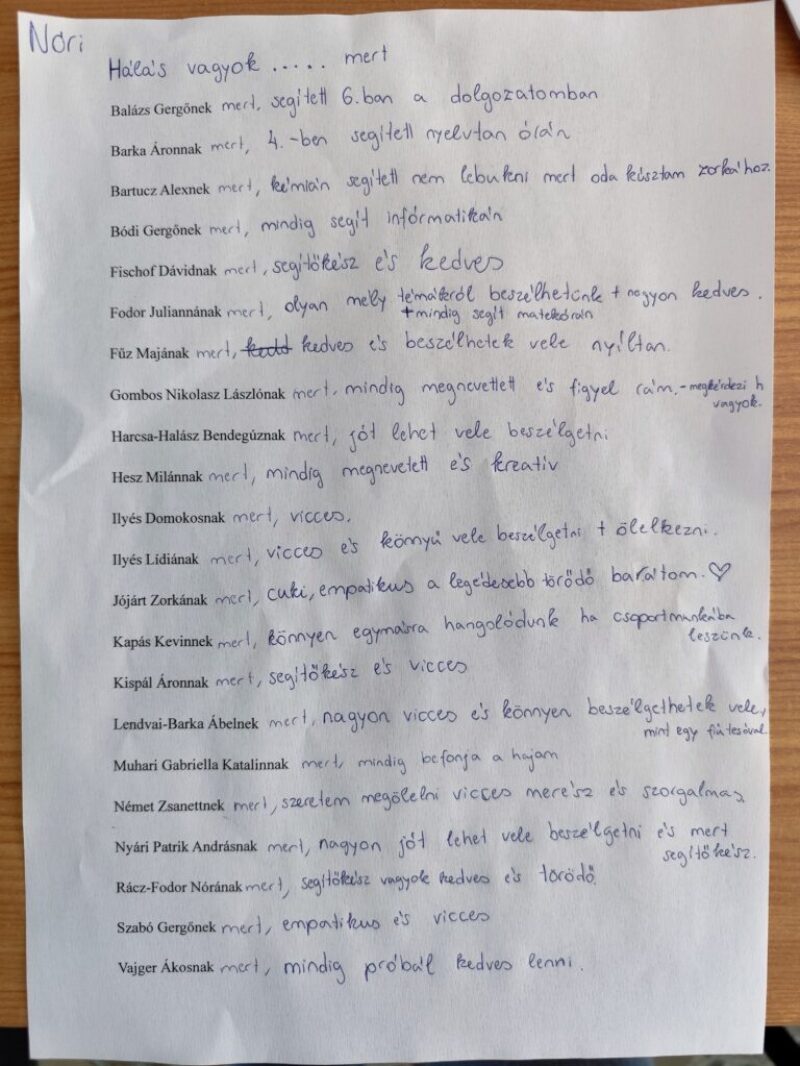 Nóri
Hálás vagyok ..... mert
Balázs Gergőnek mert, segített 6.ban a dolgozatomban
Barka Áronnak mert, 4.-ben segített nyelvtan órán
Bartucz Alexnek mert, kémián segített nem lebukni mert oda kúsztam zorkához.
Bódi Gergőnek mert, mindig segít informatikán
Fischof Dávidnak mert, segítőkész és kedves
Fodor Juliannának mert, olyan mély témákról beszélhetünk + nagyon kedves.
+ mindig segít matekórán
Fűz Majának mert, kedves és beszélhetek vele nyíltan.
Gombos Nikolasz Lászlónak mert, mindig megnevettett és figyel rám. - megkérdezi h
vagyok.
Harcsa-Halász Bendegúznak mert, jót lehet vele beszélgetni
Hesz Milánnak mert, mindig megnevetett és kreatív
Ilyés Domokosnak mert, vicces.
Ilyés Lídiának mert, vicces és könnyű vele beszélgetni + ölelkezni.
Jójárt Zorkának mert, cuki, empatikus a legédesebb törődő barátom. ♡
Kapás Kevinnek mert, könnyen egymásra hangolódunk ha csoportmunkába
leszünk.
Kispál Áronnak mert, segítőkész és vicces
Lendvai-Barka Ábelnek mert, nagyon vicces és könnyen beszélgethetek vele,
mint egy fiútesóval.
Muhari Gabriella Katalinnak mert, mindig befonja a hajam
Német Zsanettnek mert, szeretem megölelni vicces merész és szorgalmas
Nyári Patrik Andrásnak mert, nagyon jót lehet vele beszélgetni és mert
segítőkész.
Rácz-Fodor Nórának mert, segítőkész vagyok kedves és törődő.
Szabó Gergőnek mert, empatikus és vicces
Vajger Ákosnak mert, mindig próbál kedves lenni.